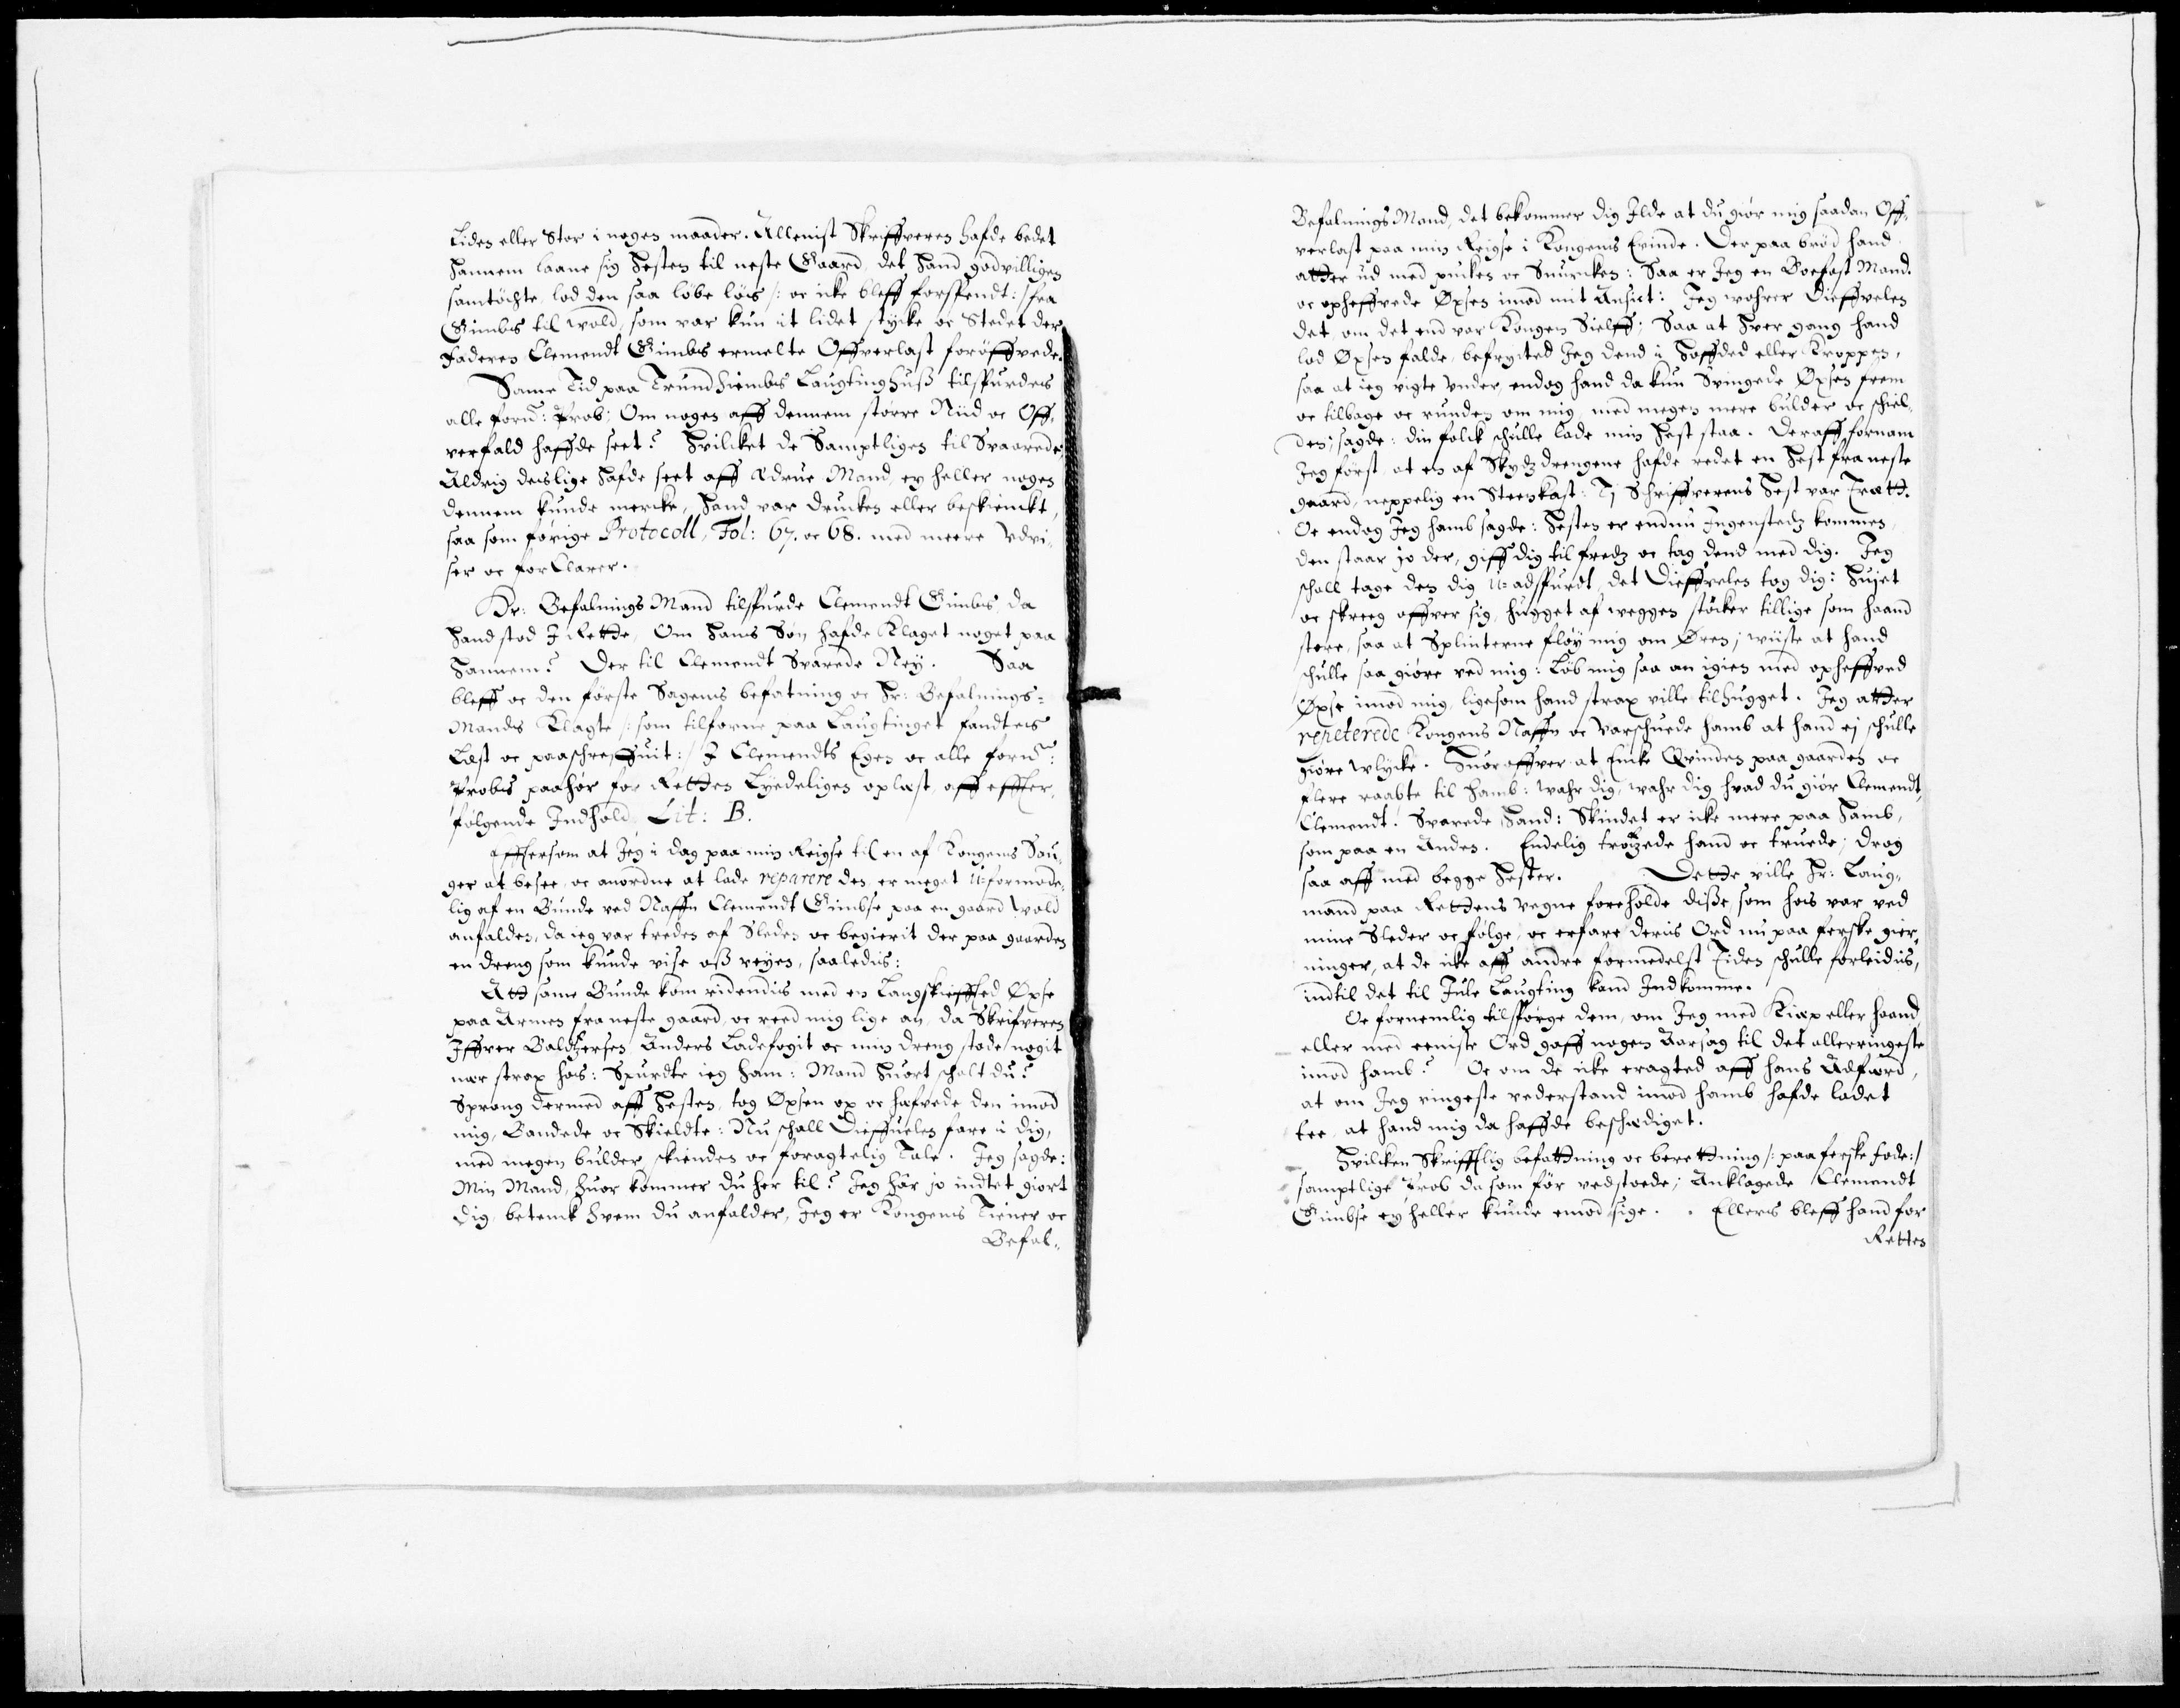 Liden eller Stor i nogen maader. Allenist Skriffveren hafde bedet
Hannem laane sig Hesten til neste Gaard, det Hand godvilligen
samtöchte, lod den saa løbe løes /: oc icke bleff forspendt :/ fra
Gimbs til Wold, som var kun it lidet stycke oc Stedet der
Faderen Clemendt Gimbs ermelte Offverlast forøffvede.
Same Tid paa Trundhiembs Laugtinghuss tilspurdes
alle fornd: Prob: Om nogen aff dennem større Niid oc Off,
verfald haffde seet? Hvilcket de Samptligen til Svaarede,
Aldrig deslige Hafde seet aff Ædrue Mand, ey heller nogen
dennem kunde mercke, Hand var drucken eller beskienckt,
saa som førige Protocoll, Fol: 67. oc 68. med meere Udvi,
ser oc forClarer.
Hr: Befalnings Mand tilspurde Clemendt Gimbs, da
Hand stod I Rette, Om Hans Søn hafde Klaget noget paa
Hannem? Der til Clemendt Svarede Ney. Saa
bleff oc den første Sagens befatning oc Hr: Befalnings=
Mands Klagte /: som tilforne paa Laugtinget fandtes
Læst oc paaschreffuit :/ I Clemendts Egen oc alle fornd:
Probs paahør for Retten Lydeligen oplæst, aff effter,
følgende Indhold, Lit: B.
Efftersom at Jeg i dag paa min Reigse til en af Kongens Sau,
ger at besee, oc anordne at lade reparere den, er meget U=formode,
lig af en Bunde ved Naffn Clemendt Gimbse paa en gaard Wold
anfalden, da ieg var treden af Sleden oc begierit der paa gaarden
en dreng som kunde vise oss veyen, saaledis:
Att same Bunde kom ridendis med en Langskieffted Øxse
paa Armen fra neste gaard, oc reed mig lige an, da Skrifveren
Iffver Baldtzersen, Anders Ladefogit oc min dreng stode nogit
nær strax hos: Spurdte ieg ham: Mand huort schalt du?
Sprong dermed aff Hesten, tog Øxsen op oc hæfvede den imod
mig, Bandede oc Skieldte: Nu schall Dieffuelen fare i dig,
med megen bulder, skienden oc foragtelig Tale. Jeg sagde:
Min Mand, huor kommer du her til? Jeg har jo indtet giort
dig, betenck hvem du anfalder, Jeg er Kongens Tiener oc
Befal,
Befalnings Mand, det bekommer dig Ilde at du giør mig saadan Off,
verlast paa min Reigse i Kongens Erinde. Der paa brød hand
atter ud med pucken oc Snurcken: Saa er Jeg en Boefast Mand.
oc opheffvede Øxsen imod mit Ansict: Jeg wahrer Dieffvelen
det, om det end var Kongen Sielff; Saa at hver gang hand
lod Øxsen falde, befryctted Jeg dend i Hoffded eller Kroppen,
saa at ieg vigte under, endog hand da kun Svingede Øxsen frem
oc tilbage oc runden om mig, med megen mere bulder oc schiel,
den; sagde: din folck schulle lade min Hest staa. Deraff fornam
Jeg først at en af Skydz drengene hafde redet en Hest fra neste
gaard, neppelig en Steenkast: Ti Schriffverens Hest var Trætt.
Oc endog Jeg hamb sagde: Hesten er endnu Ingenstedz kommen,
den staar jo der, giff dig til fredz oc tag dend med dig. Jeg
schall tage den dig U=adspurdt, det Dieffvelen tog dig: Hujet
oc skreeg offver sig, hugget af weggen støcker tillige som haand
store, saa at Splinterne fløy mig om Øren; wiiste at hand
schulle saa giøre ved mig: Løb mig saa an igien med opheffved
Øxse imod mig, ligesom hand strax ville tilhugget. Jeg atter
repeterede Kongens Naffn oc Varschuede hamb at hand ej schulle
giøre Ulycke. Huoroffver at Encke Qvinden paa gaarden oc
flere raabte til hamb: wahr dig, wahr dig hvad du giør Clemendt,
Clemendt! Svarede Hand: Skindet er icke mere paa Hamb,
som paa en Anden. Endelig trotzede hand oc truede; drog
saa aff med begge Hester. Dette ville Hr: Laug,
mand paa Rettens vegne foreholde disse, som hos var ved
mine Sleder oc følge, oc erfare deris Ord nu paa ferske gier,
ninger, at de icke aff andre formedelst Tiden schulle forleidis,
indtil det til Jule Laugting kand Indkomme.
Oc fornemlig tilspørge dem, om Jeg med Kiæp eller haand
eller med eeniste Ord gaff nogen Aarsag til det allerringeste
imod hamb? Oc om de icke eragted aff hans Adfærd,
at om Jeg ringeste vederstand imod hamb hafde ladet
tee, at hand mig da haffde beschædiget.
Hvilcken Skrifftlig befattning oc berettning /: paa ferske fode :/
samptlige Prob da som før vedstoede; Anklagede Clemendt
Gimbse ey heller kunde emod sige. Ellers bleff hand for
Retten